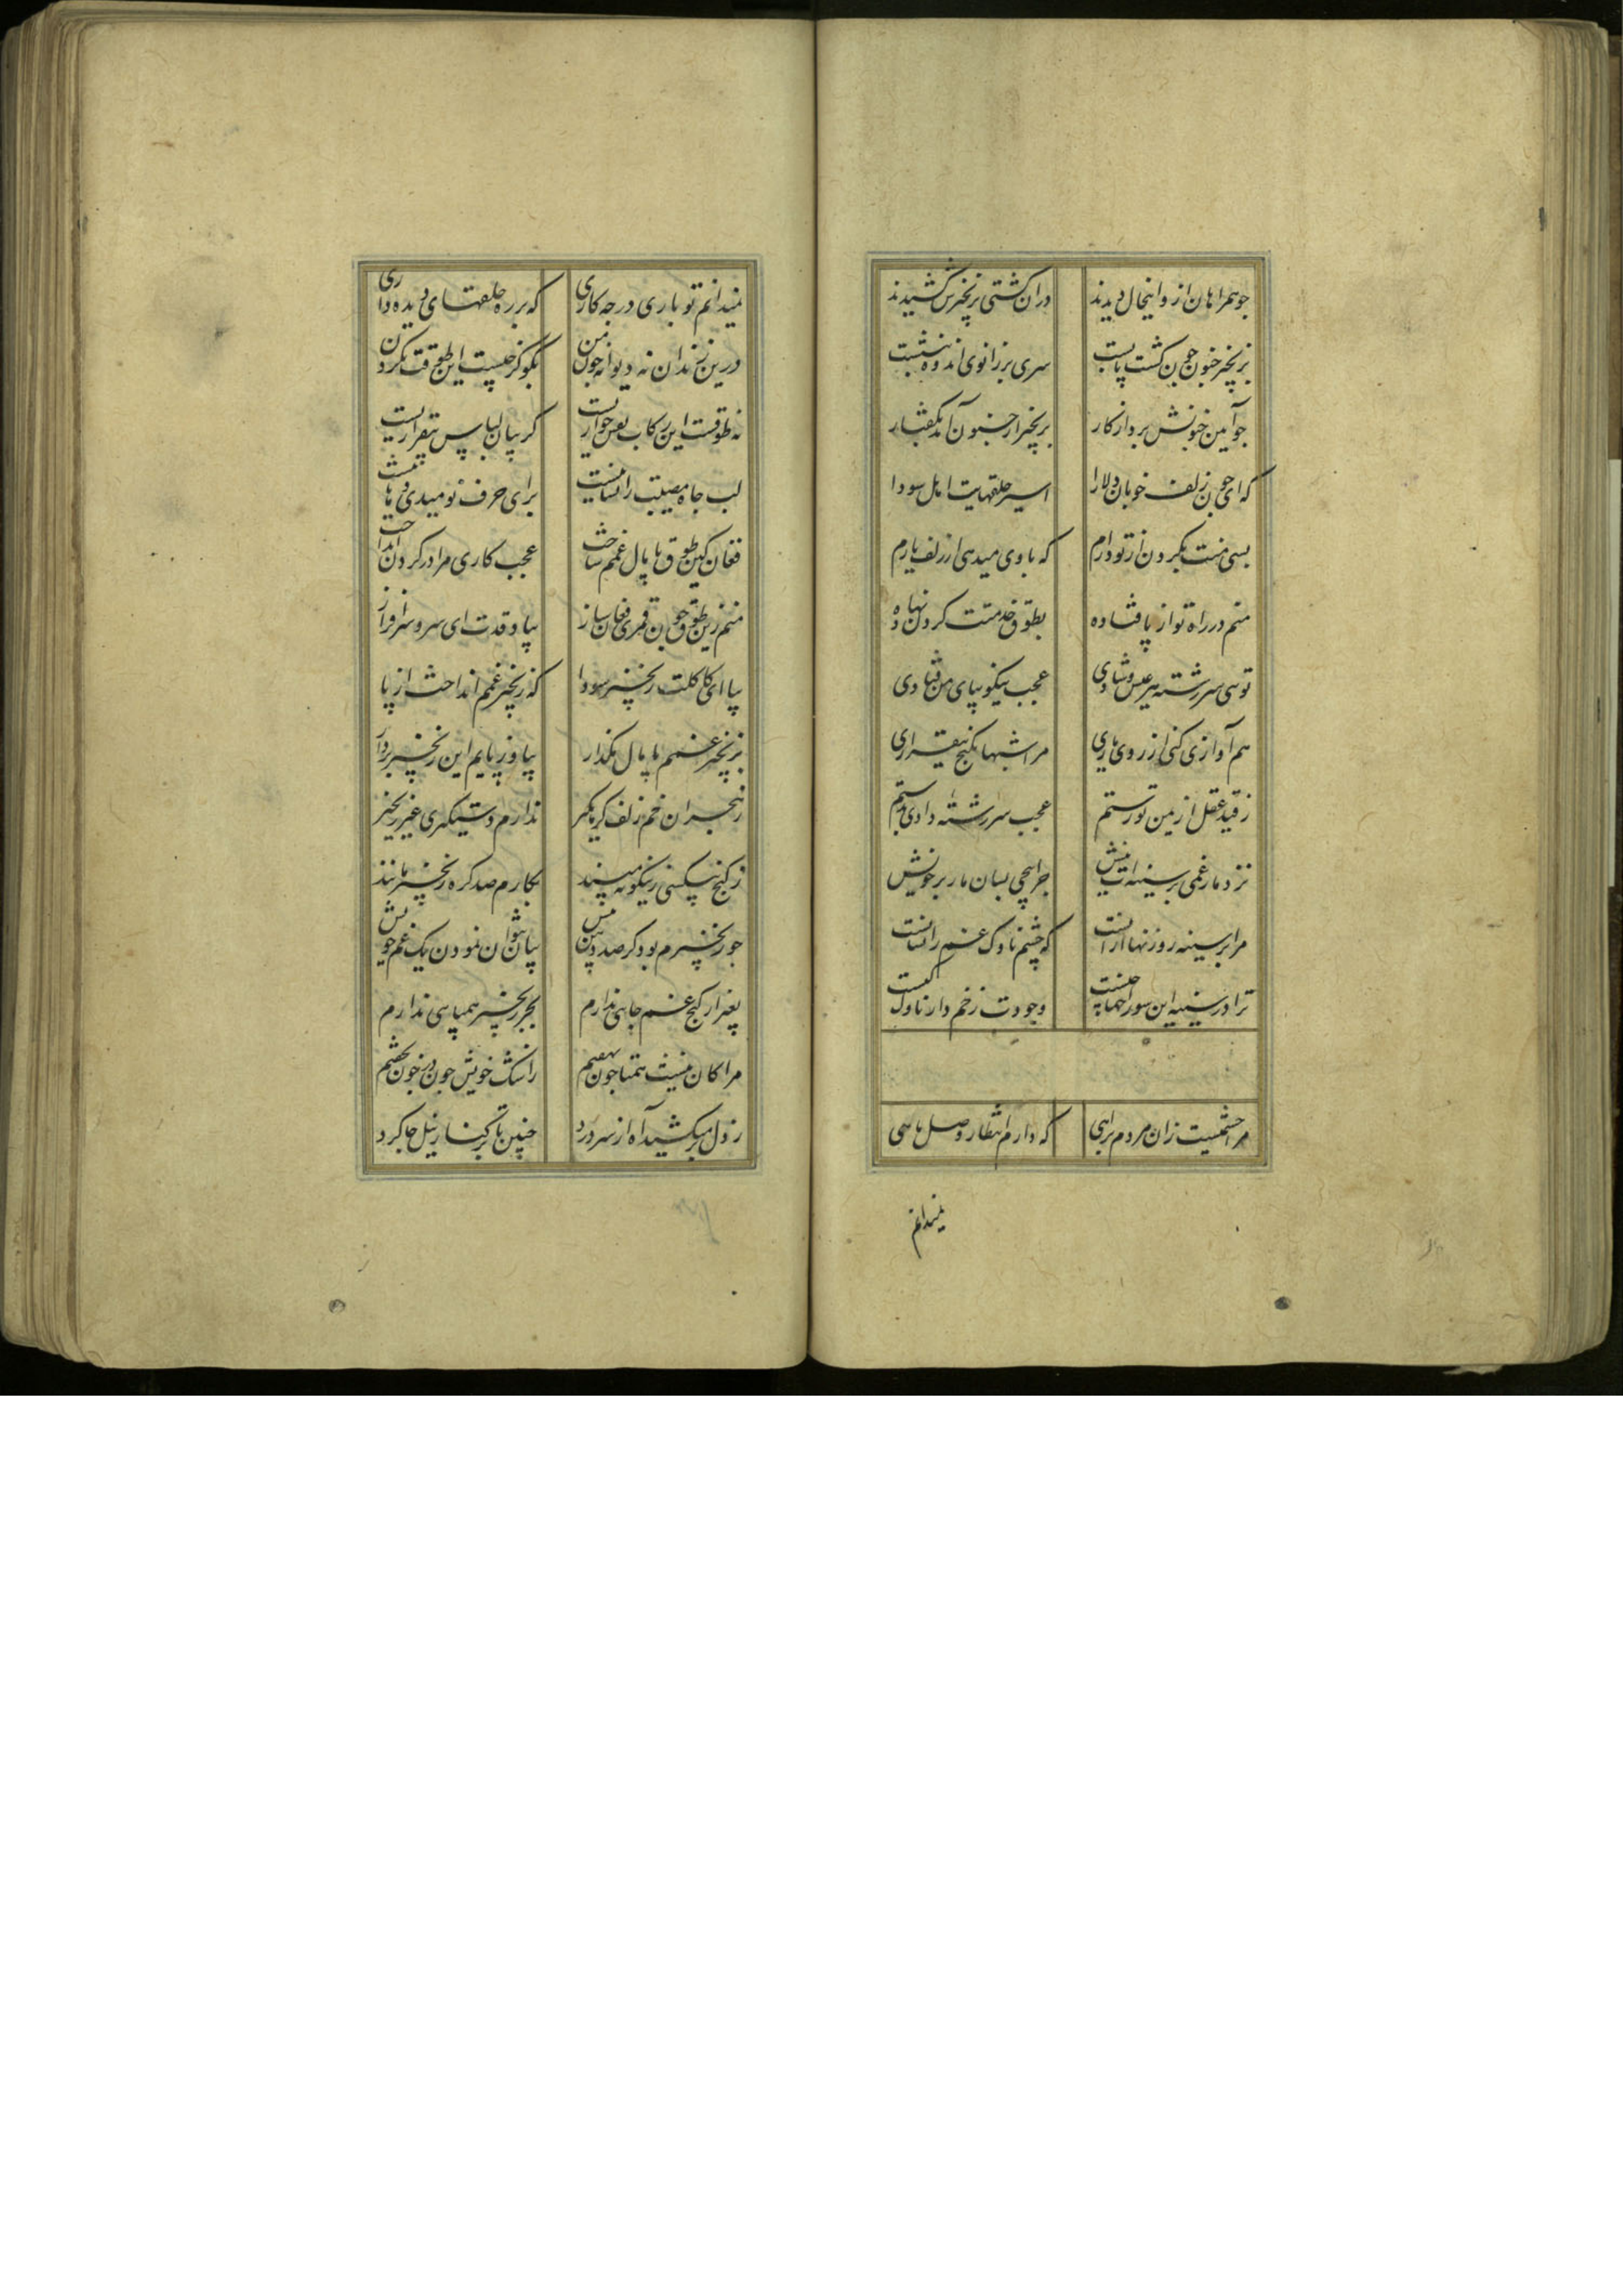 جو همراهان ازو اینحال دیدند در ان کشتی بزنجیرش کشیدند
بزنجیر جنون جون کشت پا بست سری بر زانوی اندوه بنشست
جو آیین جنونش برد از کار بزنجیر از جنون آمد بکفتار
که ای جون زلف خوبان دلارا اسیر حلقهایت اهل سودا
بسی منت بکردن از تو دارم که یادی میدهی از زلف یارم
منم در راه تو از پا فتاده بطوق خدمتت کردن نهاده
تویی سر رشتهٔ هر عیش و شادی عجب نیکو بپای من فتادی
هم آوازی کنی از روی یاری مرا شبها بکنج بیقراری
ز قید عقل از یمن تو رستم عجب سر رشته دادی بدستم
نزد مار غمی بر سینه ات نیش جرا پیچی بسان مار بر خویش
مرا بر سینه روزنها از انست که چشم ناوک غم را نشانست
ترا در سینه این سوراخها چیست وجودت زخم دار ناوک کیست
مرا چشمیست زان مردم براهی که دارم انتظار وصل ماهی
نمیدانم
نمیدانم تو باری در جه کاری که بر ره حلقهای دیده داری
درین زندان نه دیوانه جون من بکو کز چیست این طوقت بکردن
نه طوقست این رکاب لعل خواریست کریبان لباس بیقراریست
لب جاه مصیبت را نشانیست برای حرف نومیدی دهانیست
فغان کین طوق پامال غمم ساخت عجب کاری مرا در کردن انداخت
منم زین طوق جون قمری فغان ساز بیا و قدت ای سرو سرافراز
بیا ای کاکلت زنجیر سودا که زنجیر غمم انداخت از پا
بزنجیر غمم پامال مکذار بیا وز پایم این زنجیر بردار
ز هجران خم زلف کره کیر ندارم دستکیری غیر زنجیر
ز کنج بیکسی زینکونه مپسند بکارم صد کره زنجیر مانند
جو زنجیرم بود کر صد دهن بیش بیان نتوان نمودن یک غم خویش
بغیر از کنج غم جایی ندارم بجز زنجیر همپایی ندارم
مرا کان نیست همتا جون بچشم ز اشک خویش جون در خون بچشم
ز دل بر میکشید آه از سر درد چنین تا بر کنار نیل جا کرد